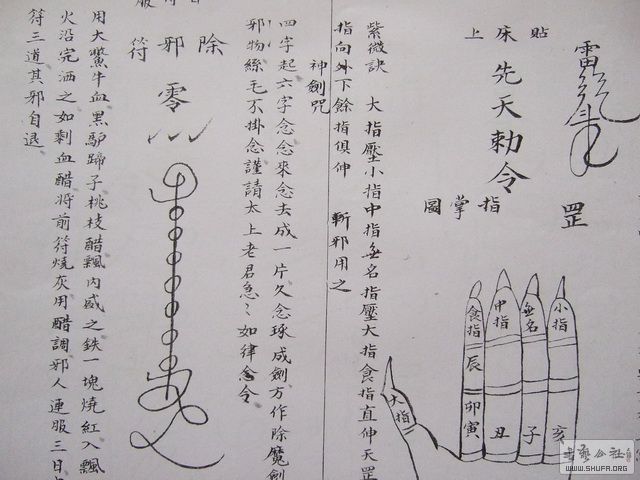 貼床上
先天勅令
罡
指掌圖
食指
中指
無名
小指
大指
辰
卯
寅
丑
子
亥
紫微訣　大指壓小指中指無名指壓大指食指直伸天罡
指向外下餘指俱伸　斬邪用之
神劍咒
四字起六字念念來念去成一片久念琢成劍万作除魔劍
邪物絲毛不掛念謹請太上老君急〻如律令
除邪符
零
用大鱉牛血黑驢蹄子桃枝醋飄內咸之鉄一塊燒紅入飄
火沿完洒之如剩血醋將前符燒灰用醋調邪人連服三日
符三道其邪自退
WWW.SHUFA.ORG